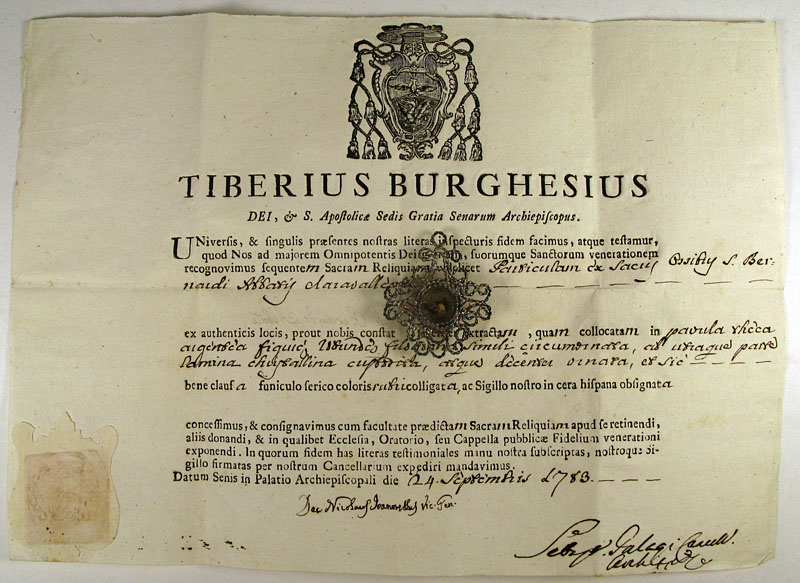 TIBERIUS BURGHESIUS
DEI, & S. Apostolicæ Sedis Gratia Senarum Archiepiscopus.
UNiversis, & singulis præsentes nostras literas inspecturis fidem facimus, atque testamur,
quod Nos ad majorem Omnipotentis Dei suorumque Sanctorum venerationem
recognovimus sequentem Sacram Reliquiam Particulam ex Sacris Ossibus S. Ber-
nardi Abbatis Claravallen
ex authenticis locis, prout nobis constat extractam, quam collocatam in parvula theca
argentea figuræ rotundæ simili circumornata, ab utraque parte
lamina chrystallina cooperta, atque decenter ornata, et sic
bene clausa funiculo serico coloris rubri colligata, ac Sigillo nostro in cera hispana obsignata
concessimus, & consignavimus cum facultate prædictam Sacram Reliquiam apud se retinendi,
aliis donandi, & in qualibet Ecclesia, Oratorio, seu Cappella pubblicæ Fidelium venerationi
exponendi. In quorum fidem has literas testimoniales manu nostra subscriptas, nostroque Si-
gillo firmatas per nostrum Cancellarium expediri mandavimus.
Datum Senis in Palatio Archiepiscopali die 24. Septembris 1783.
Nicolaus Vic. Gen.
Galagi Canell.